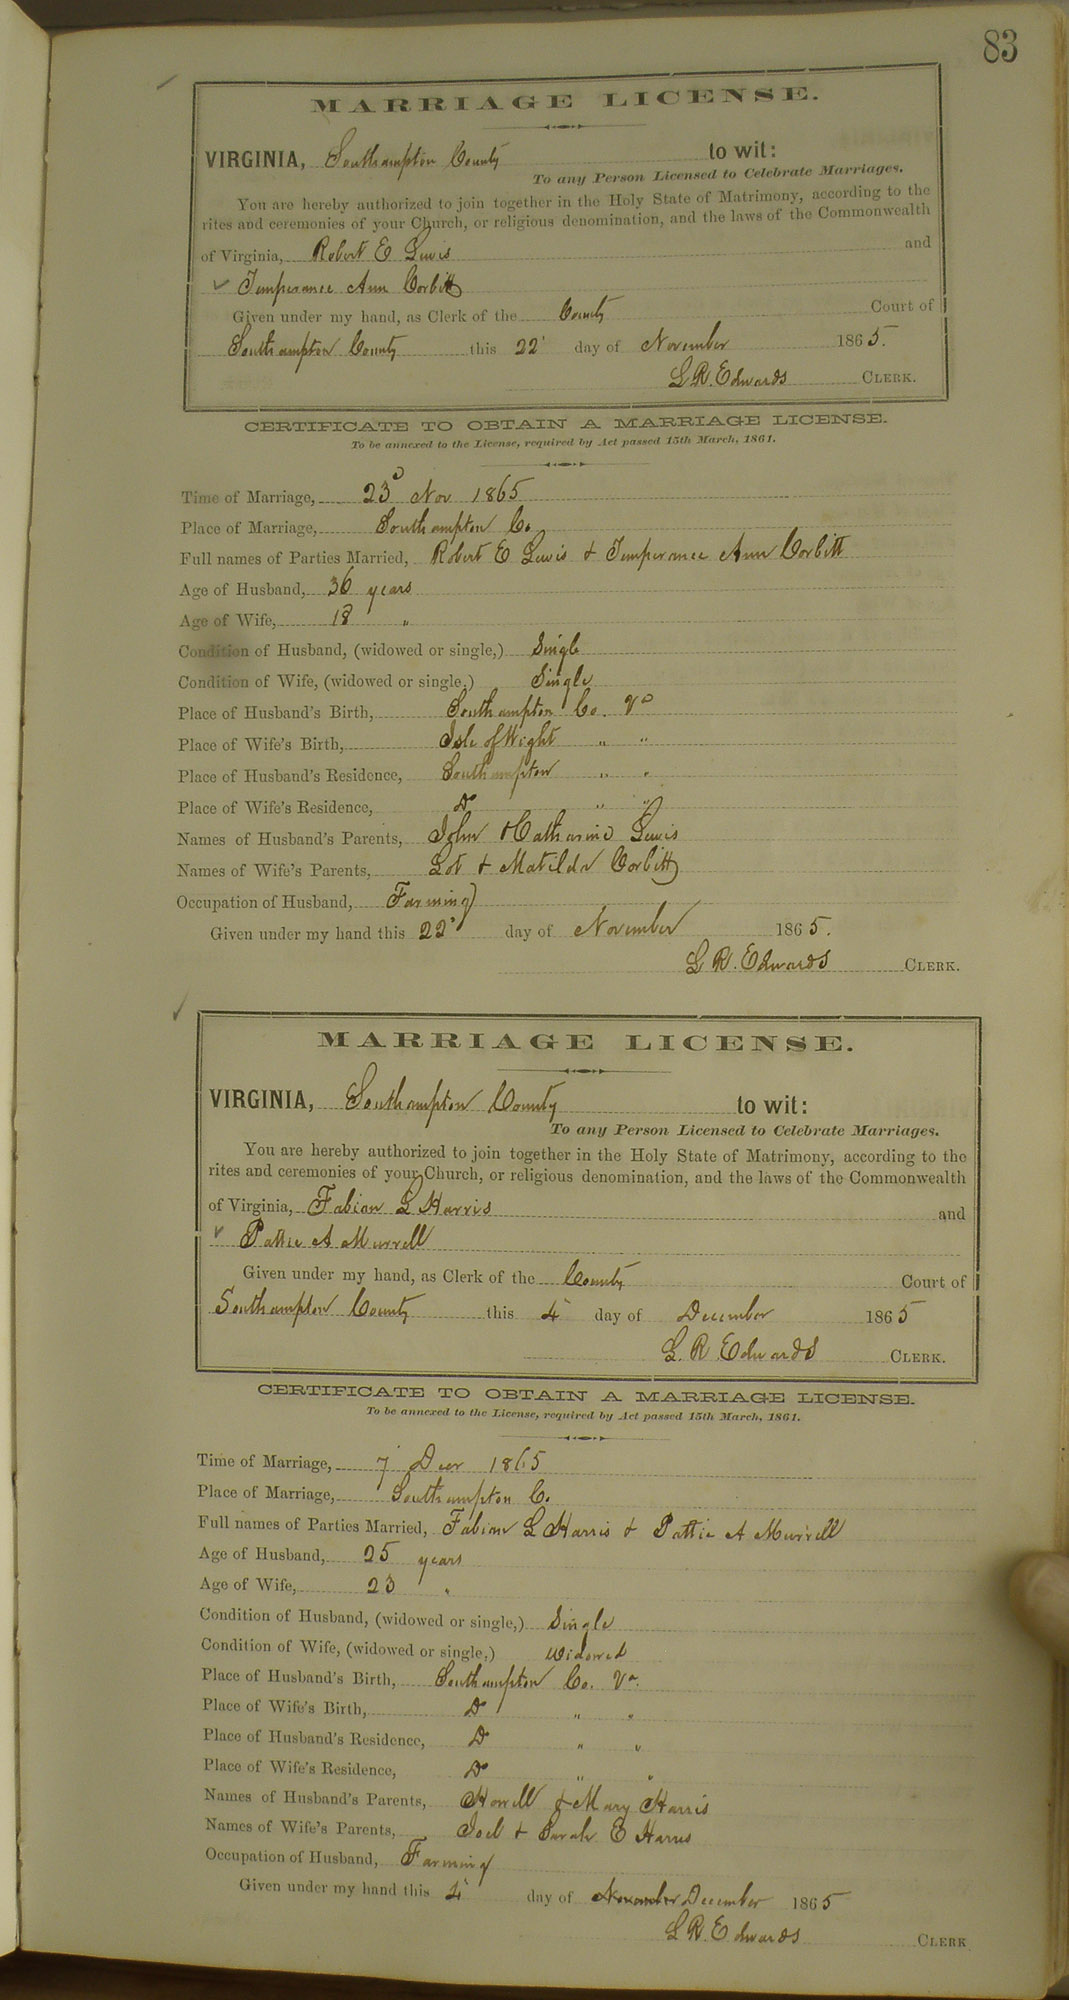 83
MARRIAGE LICENSE.
VIRGINIA, Southampton County to wit:
To any Person Licensed to Celebrate Marriages.
You are hereby authorized to join together in the Holy State of Matrimony, according to the
rites and ceremonies of your Church, or religious denomination, and the laws of the Commonwealth
of Virginia, Robert E Lewis and
Temperance Ann Corbitt
Given under my hand, as Clerk of the County Court of
Southampton County this 22' day of November 1865.
L R. Edwards CLERK.
CERTIFICATE TO OBTAIN A MARRIAGE LICENSE.
To be annexed to the License, required by Act passed 15th March, 1861.
Time of Marriage, 23d Nov 1865
Place of Marriage, Southampton Co.
Full names of Parties Married, Robert E Lewis & Temperance Ann Corbitt
Age of Husband, 36 years
Age of Wife, 18 "
Condition of Husband, (widowed or single,) Single
Condition of Wife, (widowed or single,) Single
Place of Husband's Birth, Southampton Co. Va
Place of Wife's Birth, Isle of Wight " "
Place of Husband's Residence, Southampton " "
Place of Wife's Residence, Do " "
Names of Husband's Parents, John & Catharine Lewis
Names of Wife's Parents, Lot & Matilda Corbitt
Occupation of Husband, Farming
Given under my hand this 22' day of November 1865.
L R. Edwards CLERK.
MARRIAGE LICENSE.
VIRGINIA, Southampton County to wit:
To any Person Licensed to Celebrate Marriages.
You are hereby authorized to join together in the Holy State of Matrimony, according to the
rites and ceremonies of your Church, or religious denomination, and the laws of the Commonwealth
of Virginia, Fabian L Harris and
Pattie A Murrell
Given under my hand, as Clerk of the County Court of
Southampton County this 4' day of December 1865
L. R. Edwards CLERK.
CERTIFICATE TO OBTAIN A MARRIAGE LICENSE.
To be annexed to the License, required by Act passed 15th March, 1861.
Time of Marriage, 7' Decr 1865
Place of Marriage, Southampton Co.
Full names of Parties Married, Fabian L Harris & Pattie A Murrell
Age of Husband, 25 years
Age of Wife, 23 "
Condition of Husband, (widowed or single,) Single
Condition of Wife, (widowed or single,) Widowed
Place of Husband's Birth, Southampton Co. Va.
Place of Wife's Birth, Do " "
Place of Husband's Residence, Do " "
Place of Wife's Residence, Do " "
Names of Husband's Parents, Howell & Mary Harris
Names of Wife's Parents, Joel & Sarah E Harris
Occupation of Husband, Farming
Given under my hand this 4' day of November December 1865
L R. Edwards CLERK